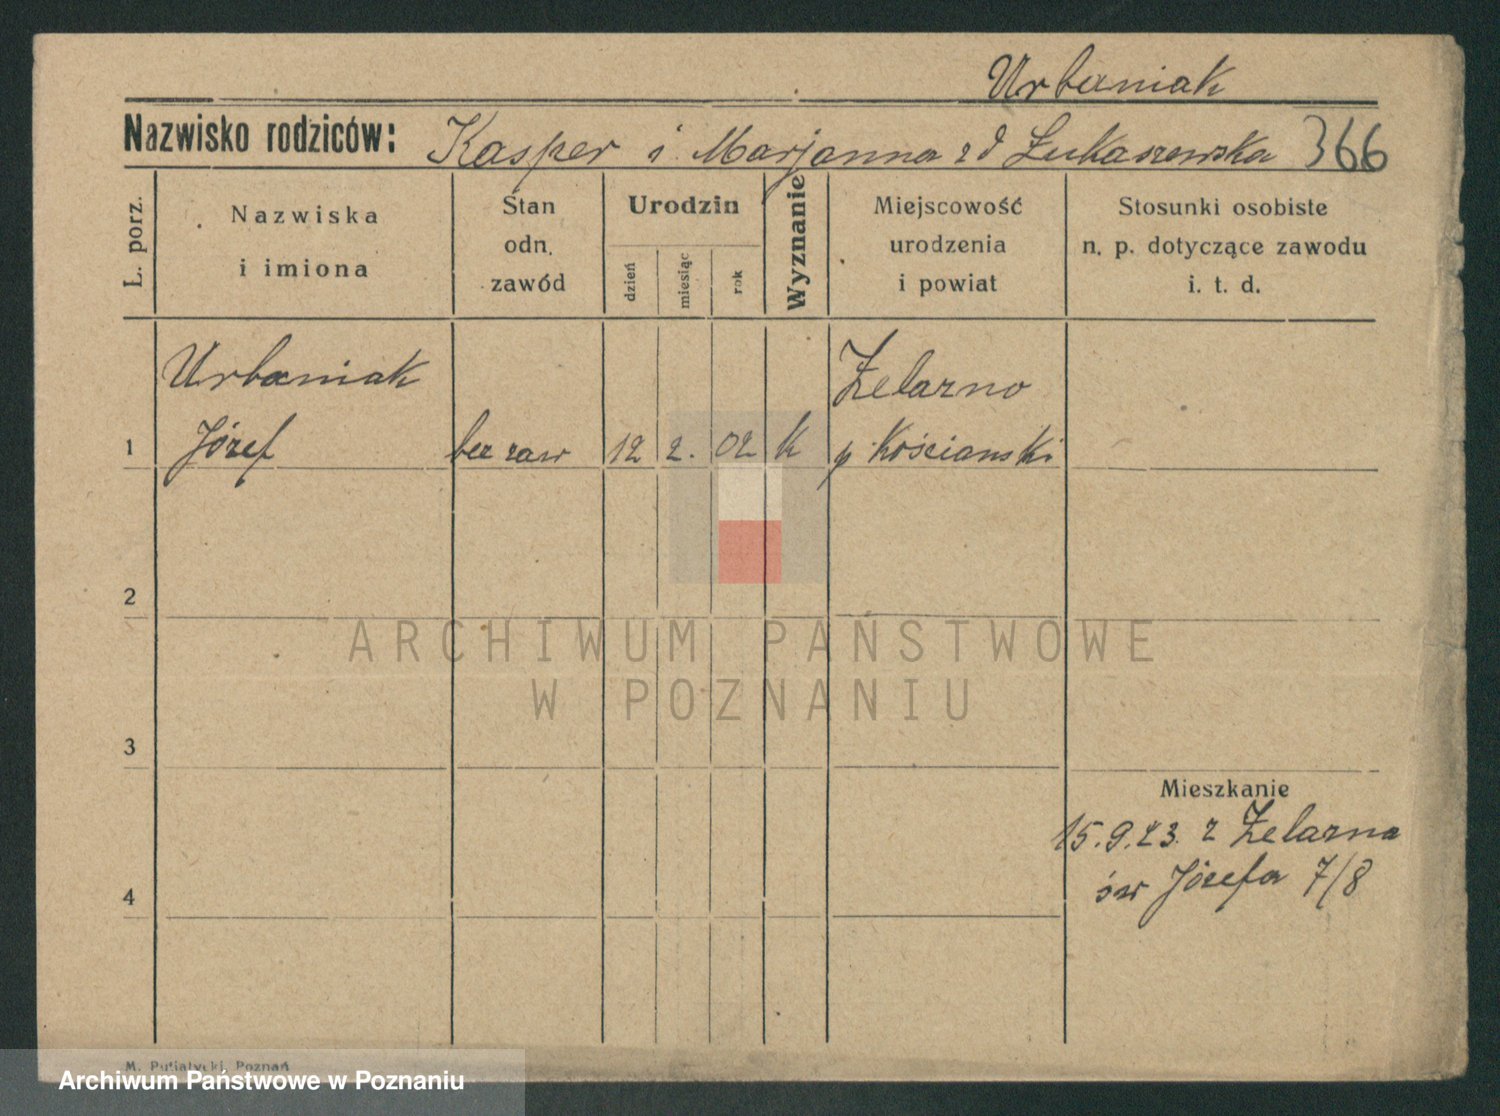 Urbaniak
Nazwisko rodziców: Kasper i Marjanna zd Łukaszewska 366
L. porz.
Nazwiska
i imiona
Stan
odn.
zawód
Urodzin
dzień
miesiąc
rok
Wyznanie
Miejscowość
urodzenia
i powiat
Stosunki osobiste
n. p. dotyczące zawodu
i. t. d.
Urbaniak Żelazno
1 Józef bez zaw 12 2. 02 k p Kościański
2
ARCHIWUM PAŃSTWOWE
W POZNANIU
3
Mieszkanie
15.9.23. z Żelazna
św Józefa 7/8
4
M. Putiatycki, Poznań
Archiwum Państwowe w Poznaniu